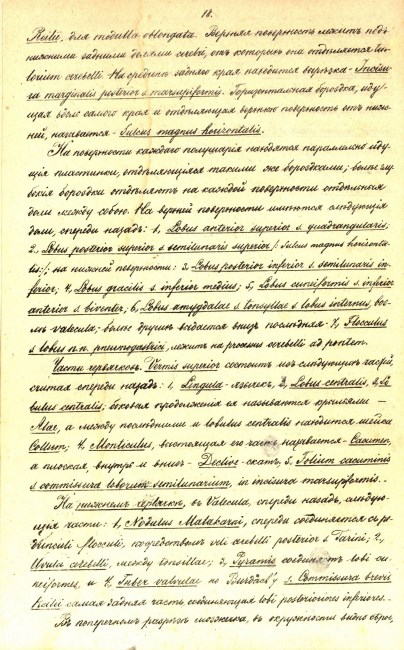 18.
Reilii, для medulla oblongata. Верхняя поверхность лежитъ подъ
нижними задними долями cerebri, отъ которыхъ она отдѣляется ten-
torium cerebelli. На срединѣ задняго края находится вырѣзка - Incisu-
ra marginalis posterior s. marsupiformis. Горизонтальная бороздка, иду-
щая вдоль самого края и отдѣляющая верхнюю поверхность отъ ниж-
ней, называется - Sulcus magnus horizontalis.
На поверхности каждаго полушарія находятся параллельно иду-
щія пластинки, отдѣляющіяся такими же бороздками;
бороздки отдѣляютъ на каждой поверхности отдѣльныя
доли между собою. На верхней поверхности имѣются слѣдующія
доли, спереди назадъ: 1, Lobus anterior superior s. quadrangularis;
2, Lobus posterior superior s. semilunaris superior /: Sulcus magnus horizonta-
lis :/; на нижней поверхности: 3, Lobus posterior inferior s. semilunaris in-
ferior; 4, Lobus gracilis s. inferior medius; 5, Lobus cuneiformis s. inferior
anterior s. biventer; 6, Lobus amygdalae s. tonsillae s. lobus internus,
valecula; болѣе другихъ вдается внизъ послѣдняя. 7, Flocculus
s. lobus n.n. pneumogastrici, лежитъ на processus cerebelli ad pontem.
Части червячковъ. Vermis superior состоитъ изъ слѣдующихъ частей,
считая спереди назадъ: 1, Lingula - язычекъ, 2, Lobus centralis, 3, Lo-
bulus centralis; боковыя продолженія ея называются крыльями -
Alae, а между послѣдними и lobulus centralis находится шейка
Collum; 4, Monticulus, выстоящая его часть называется - Cacumen,
а плоская, внутрь и внизъ - Declive - скатъ, 5, Folium cacuminis
s. commissura loborum semilunarium, въ incisura marsupiformis.
На нижнемъ червячкѣ, въ Valecula, спереди назадъ, слѣду-
ющія части: 1, Nodulus Malacarni, спереди соединяется съ pe-
dunculi flocculi, посредствомъ veli cerebelli posterior s. Tarini; 2,
Uvula cerebelli, между tonsillae; 3, Pyramis соединяетъ lobi cu-
neiformes, и 4, Tuber valvulae по Burdach'у s. Commissura brevis
Reilii самая задняя часть соединяющая lobi posteriores inferiores.
Въ поперечномъ разрѣзѣ мозжечка, въ окружности видно сѣрое,